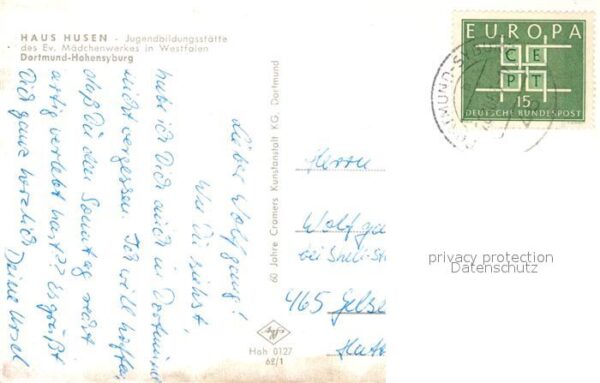 HAUS HUSEN - Jugendbildungsstätte
des Ev. Mädchenwerkes in Westfalen
Dortmund-Hohensyburg
Lieber Wolfgang!
Wie Du siehst,
habe ich Dich auch in Dortmund
nicht vergessen. Ich will hoffen,
daß Du den Sonntag recht
artig verlebt hast?? Es grüßt
Dich ganz herzlich
Deine Ursel
60 Jahre Cramers Kunstanstalt KG, Dortmund
Hoh 0127
62/1
EUROPA
CE
PT
15
DEUTSCHE BUNDESPOST
Herrn
Wolfga
bei
465 Gelse
privacy protection
Datenschutz